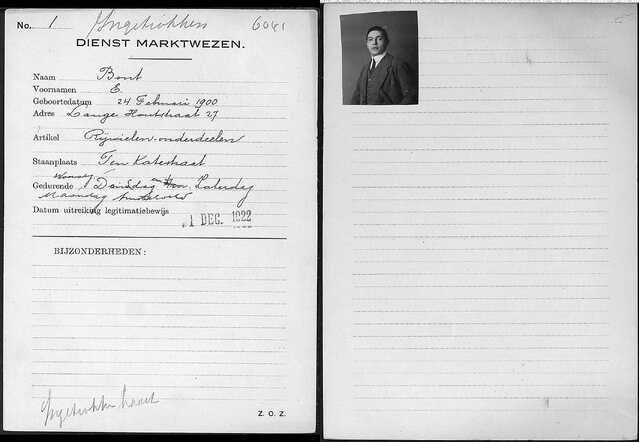 No. 1 Ingetrokken 6041
DIENST MARKTWEZEN.
Naam Bont
Voornamen E.
Geboortedatum 24 Februari 1900
Adres Lange Houtstraat 27
Artikel Rijwielen-onderdeelen
Staanplaats Ten Katestraat
Gedurende Dinsdag en Zaterdag
Maandag Amstelveld
Datum uitreiking legitimatiebewijs 1 DEC. 1922
BIJZONDERHEDEN:
Ingetrokken kaart
Z. O. Z.